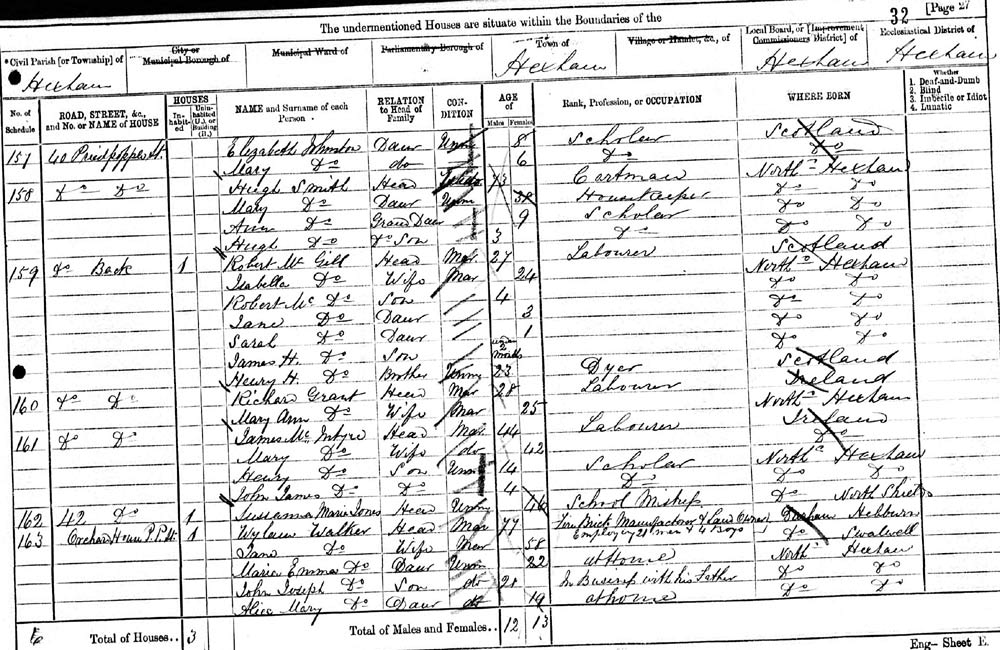 32 [Page 27
The undermentioned Houses are situate within the Boundaries of the
*Civil Parish [or Township] of
City or Municipal Borough of
Municipal Ward of
Parliamentary Borough of
Town of
Village or Hamlet, &c., of
Local Board, or [Improvement Commissioners District] of
Ecclesiastical District of
Hexham Hexham Hexham Hexham
No. of Schedule
ROAD, STREET, &c., and No. or NAME of HOUSE
HOUSES
Inhabited
Uninhabited (U.), or Building (B.)
NAME and Surname of each Person
RELATION to Head of Family
CONDITION
AGE of
Males Females
Rank, Profession, or OCCUPATION
WHERE BORN
Whether
1. Deaf-and-Dumb
2. Blind
3. Imbecile or Idiot
4. Lunatic
157 40 Priestpopple St. Elizabeth Johnston Daur Unm 8 Scholar Scotland
Mary Do do 6 Do Do
158 Do Do Hugh Smith Head 73 Cartman North Hexham
Mary Do Daur Unm 38 Housekeeper Do Do
Ann Do Grand Daur 9 Scholar Do Do
Hugh Do Do Son 3 Do Do Do
159 Do Back 1 Robert Mc Gill Head Mar 27 Labourer Scotland
Isabella Do Wife Mar 24 North Hexham
Robert Mc Do Son 4 Do Do
Jane Do Daur 3 Do Do
Sarah Do Daur 1 Do Do
James H. Do Son 2 months Do Do
Henry H. Do Brother Unm 23 Dyer Scotland
160 Do Do Richard Grant Head Mar 28 Labourer Ireland
Mary Ann Do Wife Mar 25 North Hexham
161 Do Do James Mc Intyre Head Mar 44 Labourer Ireland
Mary Do Wife do 42 Do
Henry Do Son Unm 14 Scholar North Hexham
John James Do Do 4 Do Do Do
162 42 Do 1 Susanna Maria Jones Head 46 School Do North Shields
163 Orchard House P.P. St. 1 Wylam Walker Head Mar 77 Fire Brick Manufacturer & Land Owner Employing 21 men & 4 Boys Durham Hebburn
Jane Do Wife Mar 58 Do Swalwell
Maria Emma Do Daur Unm 22 at Home North Hexham
John Joseph Do Son do 21 In Business with his Father Do Do
Alice Mary Do Daur do 19 at home Do Do
Total of Houses.. 3
Total of Males and Females.. 12 13
Eng— Sheet E.